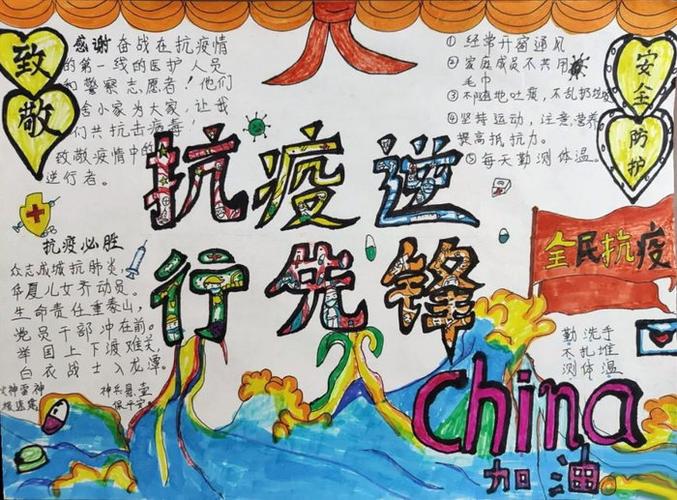 致敬
感谢奋战在抗疫情
的第一线的医护人员
和警察志愿者！他们
舍小家为大家，让我
们共抗击病毒！
致敬疫情中的
逆行者。
① 经常开窗通风
② 家庭成员不共用
毛巾
③ 不随地吐痰，不乱扔垃圾
④ 坚持运动，注意营养
提高抵抗力。
⑤ 每天勤测体温。
安全
防护
抗疫逆
行先锋
全民抗疫
抗疫必胜
众志成城抗肺炎，
华夏儿女齐动员。
生命责任重泰山，
党员干部冲在前。
举国上下渡难关，
白衣战士入龙潭。
火神雷神
神兵悬壶
保平
勤洗手
不扎堆
测体温
China
加油